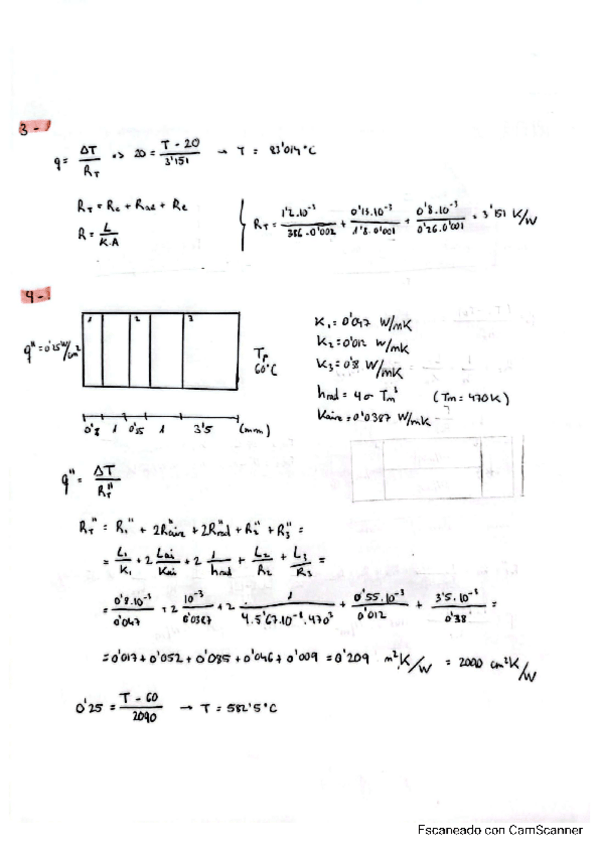 3-
q = ΔT/R_T => 20 = (T - 20)/3'151 → T = 83'014 °C
R_T = R_c + R_ac + R_e
R = L/(K.A)
R_T = 1'2.10^-3/(386.0'002) + 0'13.10^-3/(1'8.0'001) + 0'8.10^-3/(0'26.0'001) = 3'151 K/W
4-
1 2 3
q" = 0'25 W/cm²
T_P
60°C
0'8 1 0'55 1 3'5 (mm)
K₁ = 0'047 W/mK
K₂ = 0'012 W/mK
K₃ = 0'8 W/mK
hrad = 4σ Tm³ (Tm = 470K)
Kaire = 0'0387 W/mK
q" = ΔT/R_T"
R_T" = R₁" + 2R"aire + 2R"rad + R₂" + R₃" =
= L₁/K₁ + 2 Lai/Kai + 2 1/hrad + L₂/R₂ + L₃/R₃ =
= 0'8.10^-3/0'047 + 2 10^-3/0'0387 + 2 1/(4.5'67.10^-8.470³) + 0'55.10^-3/0'012 + 3'5.10^-3/0'38 =
= 0'017 + 0'052 + 0'085 + 0'046 + 0'009 = 0'209 m²K/W = 2090 cm²K/W
0'25 = (T - 60)/2090 → T = 582'5 °C
Escaneado con CamScanner